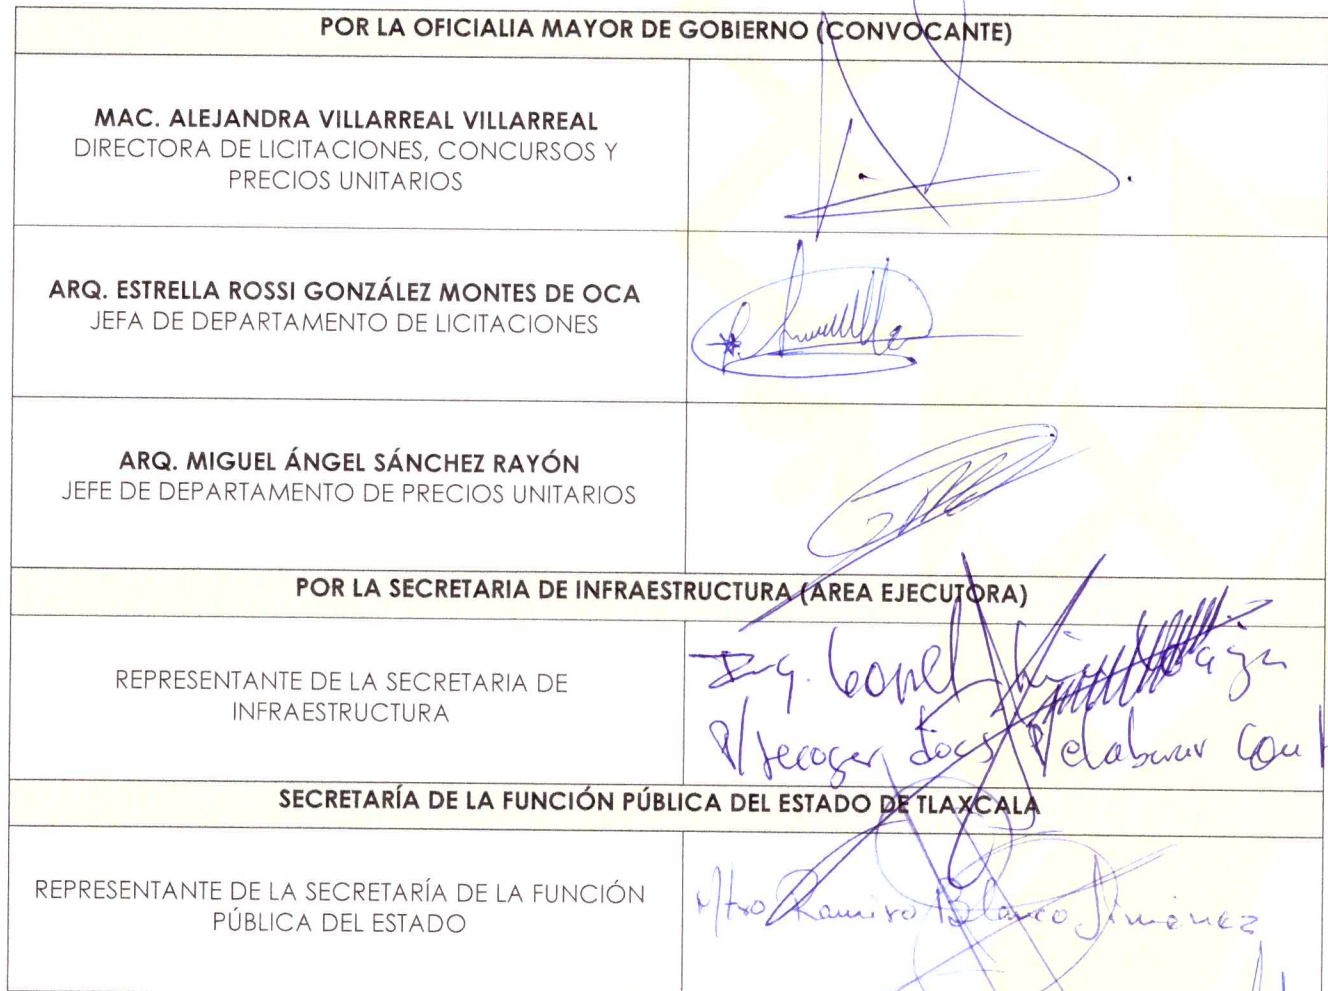 POR LA OFICIALIA MAYOR DE GOBIERNO (CONVOCANTE)
MAC. ALEJANDRA VILLARREAL VILLARREAL
DIRECTORA DE LICITACIONES, CONCURSOS Y
PRECIOS UNITARIOS
ARQ. ESTRELLA ROSSI GONZÁLEZ MONTES DE OCA
JEFA DE DEPARTAMENTO DE LICITACIONES
ARQ. MIGUEL ÁNGEL SÁNCHEZ RAYÓN
JEFE DE DEPARTAMENTO DE PRECIOS UNITARIOS
POR LA SECRETARIA DE INFRAESTRUCTURA (AREA EJECUTORA)
REPRESENTANTE DE LA SECRETARIA DE
INFRAESTRUCTURA
Ing.
P/recoger docs P/elaborar
SECRETARÍA DE LA FUNCIÓN PÚBLICA DEL ESTADO DE TLAXCALA
REPRESENTANTE DE LA SECRETARÍA DE LA FUNCIÓN
PÚBLICA DEL ESTADO
Mtro Ramiro Blanco Jiménez